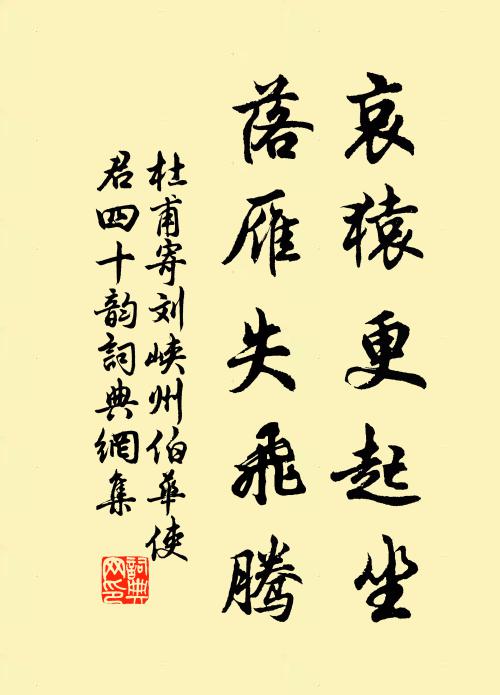 哀猿更起坐
落雁失飛騰
杜甫寄刘峡州伯華使
君四十韵詞典網集
詞典
网印